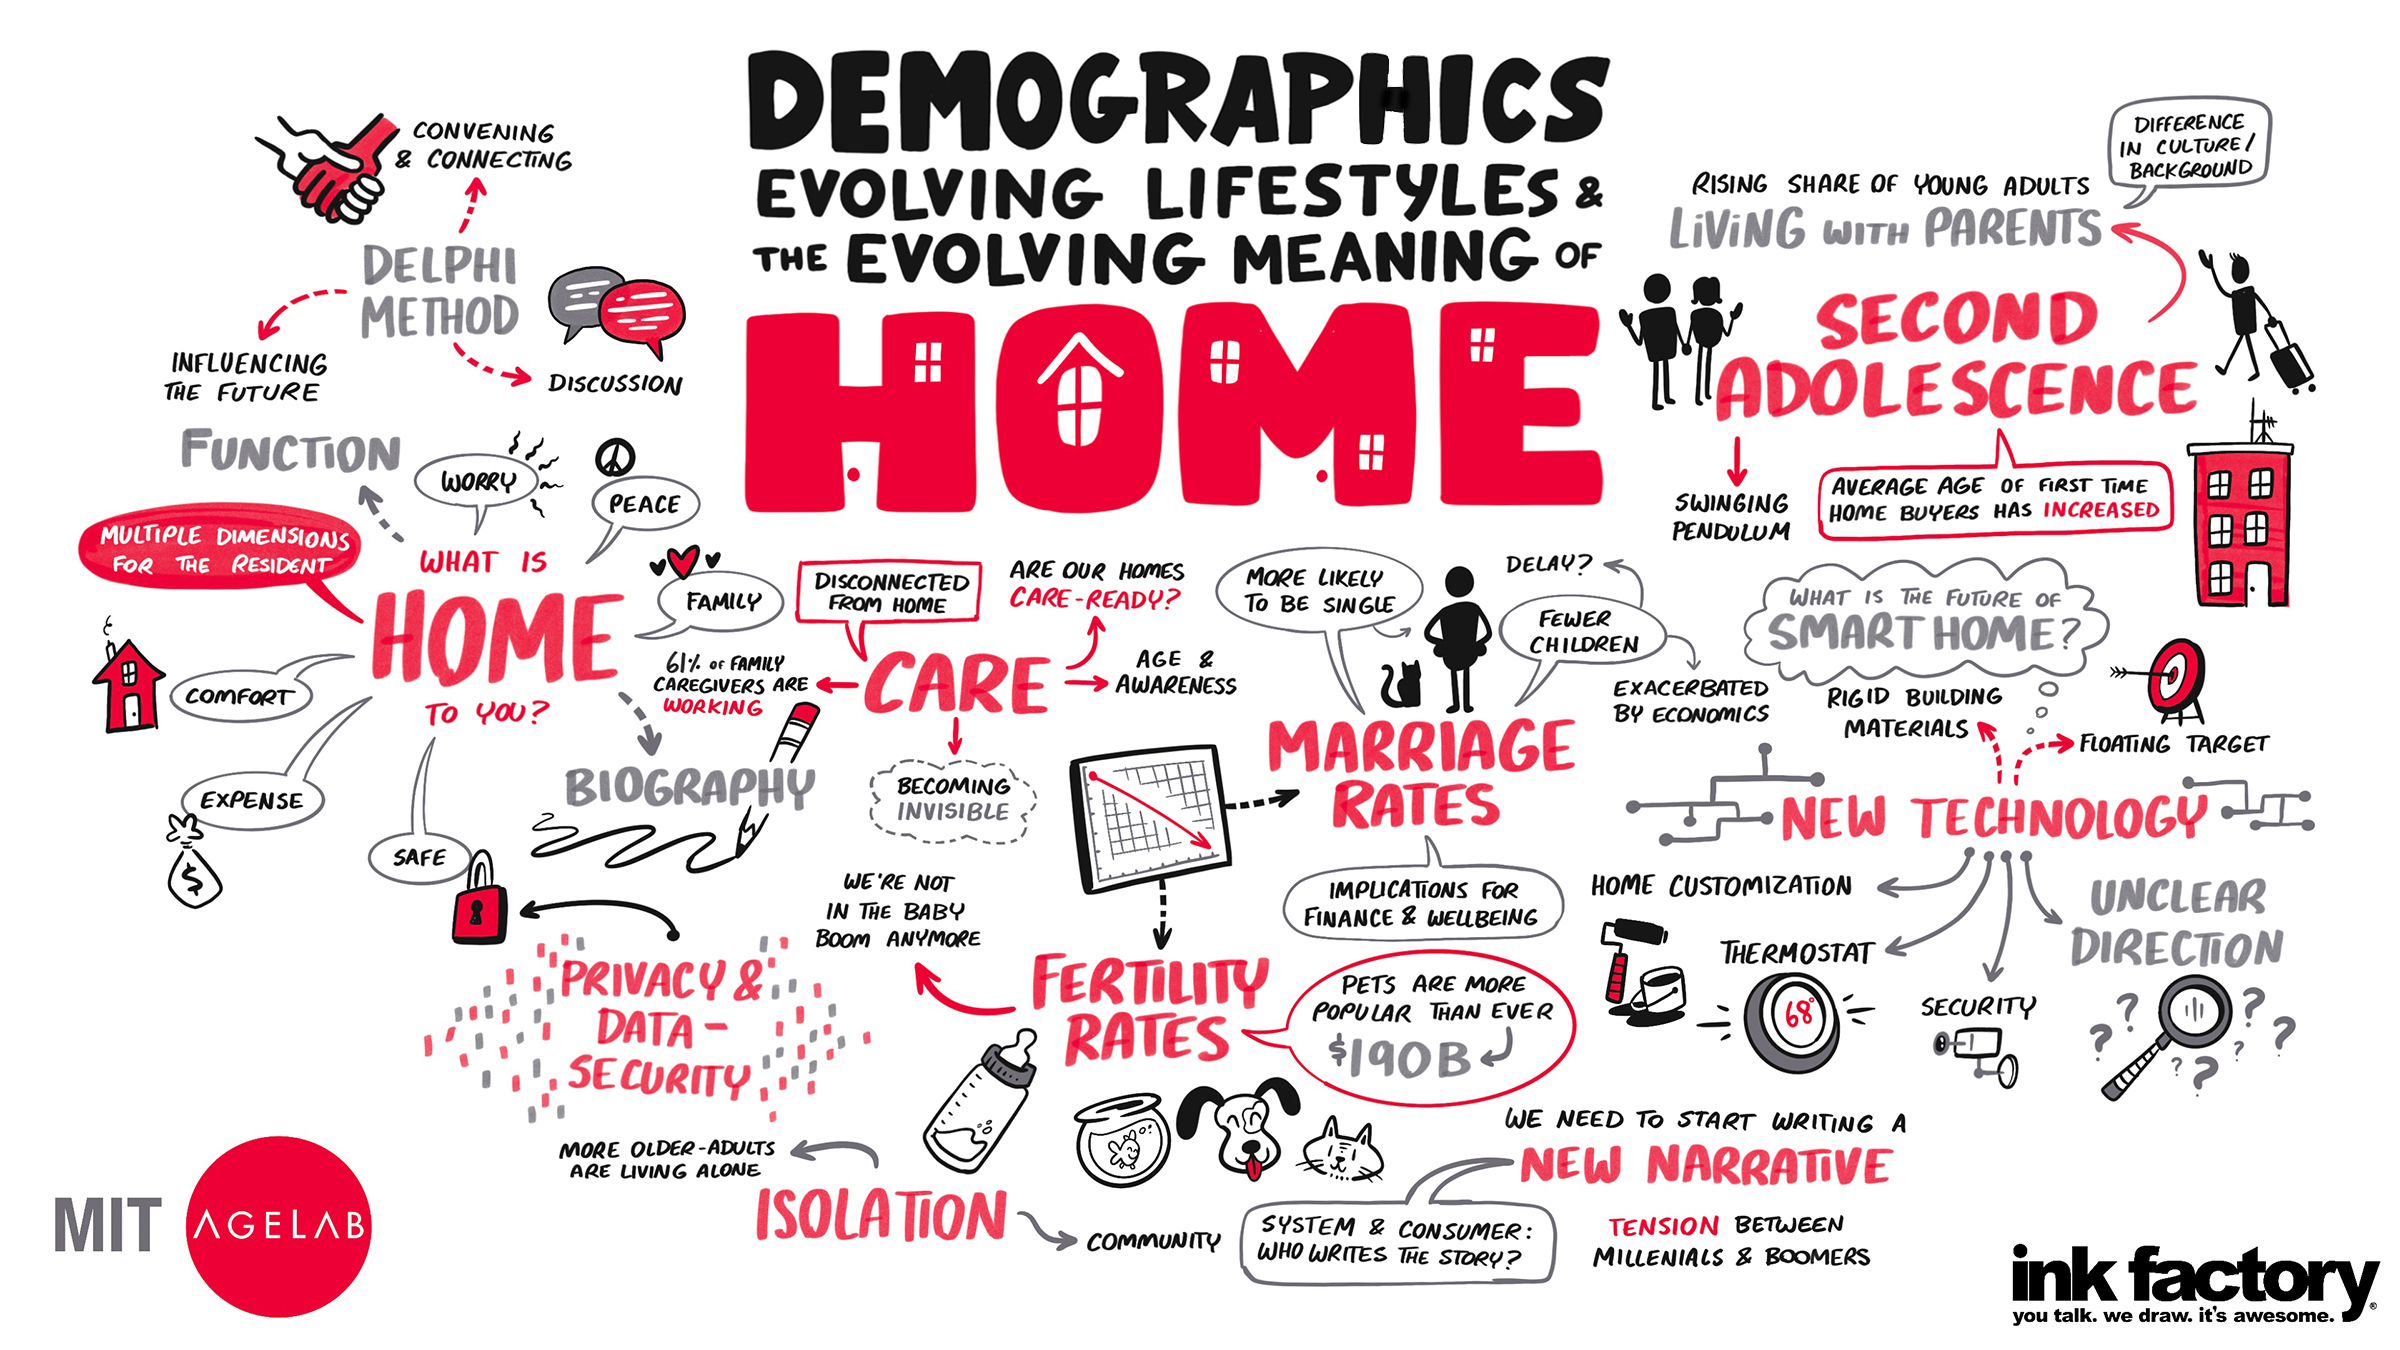 DEMOGRAPHICS
EVOLVING LIFESTYLES &
THE EVOLVING MEANING OF
HOME
CONVENING
& CONNECTING
DELPHI
METHOD
INFLUENCING
THE FUTURE
DISCUSSION
FUNCTION
WORRY
PEACE
MULTIPLE DIMENSIONS
FOR THE RESIDENT
WHAT IS
HOME
TO YOU?
FAMILY
COMFORT
EXPENSE
$
SAFE
BIOGRAPHY
PRIVACY &
DATA-
SECURITY
DISCONNECTED
FROM HOME
ARE OUR HOMES
CARE-READY?
61% OF FAMILY
CAREGIVERS ARE
WORKING
CARE
AGE &
AWARENESS
BECOMING
INVISIBLE
MORE LIKELY
TO BE SINGLE
DELAY?
FEWER
CHILDREN
EXACERBATED
BY ECONOMICS
MARRIAGE
RATES
IMPLICATIONS FOR
FINANCE & WELLBEING
WE'RE NOT
IN THE BABY
BOOM ANYMORE
FERTILITY
RATES
PETS ARE MORE
POPULAR THAN EVER
$190B
MORE OLDER-ADULTS
ARE LIVING ALONE
ISOLATION
COMMUNITY
WE NEED TO START WRITING A
NEW NARRATIVE
SYSTEM & CONSUMER:
WHO WRITES THE STORY?
TENSION BETWEEN
MILLENIALS & BOOMERS
DIFFERENCE
IN CULTURE/
BACKGROUND
RISING SHARE OF YOUNG ADULTS
LIVING WITH PARENTS
SECOND
ADOLESCENCE
SWINGING
PENDULUM
AVERAGE AGE OF FIRST TIME
HOME BUYERS HAS INCREASED
WHAT IS THE FUTURE OF
SMART HOME?
RIGID BUILDING
MATERIALS
FLOATING TARGET
NEW TECHNOLOGY
HOME CUSTOMIZATION
THERMOSTAT
68°
SECURITY
UNCLEAR
DIRECTION
? ? ? ? ? ? ?
MIT AGELAB
ink factory®
you talk. we draw. it's awesome.